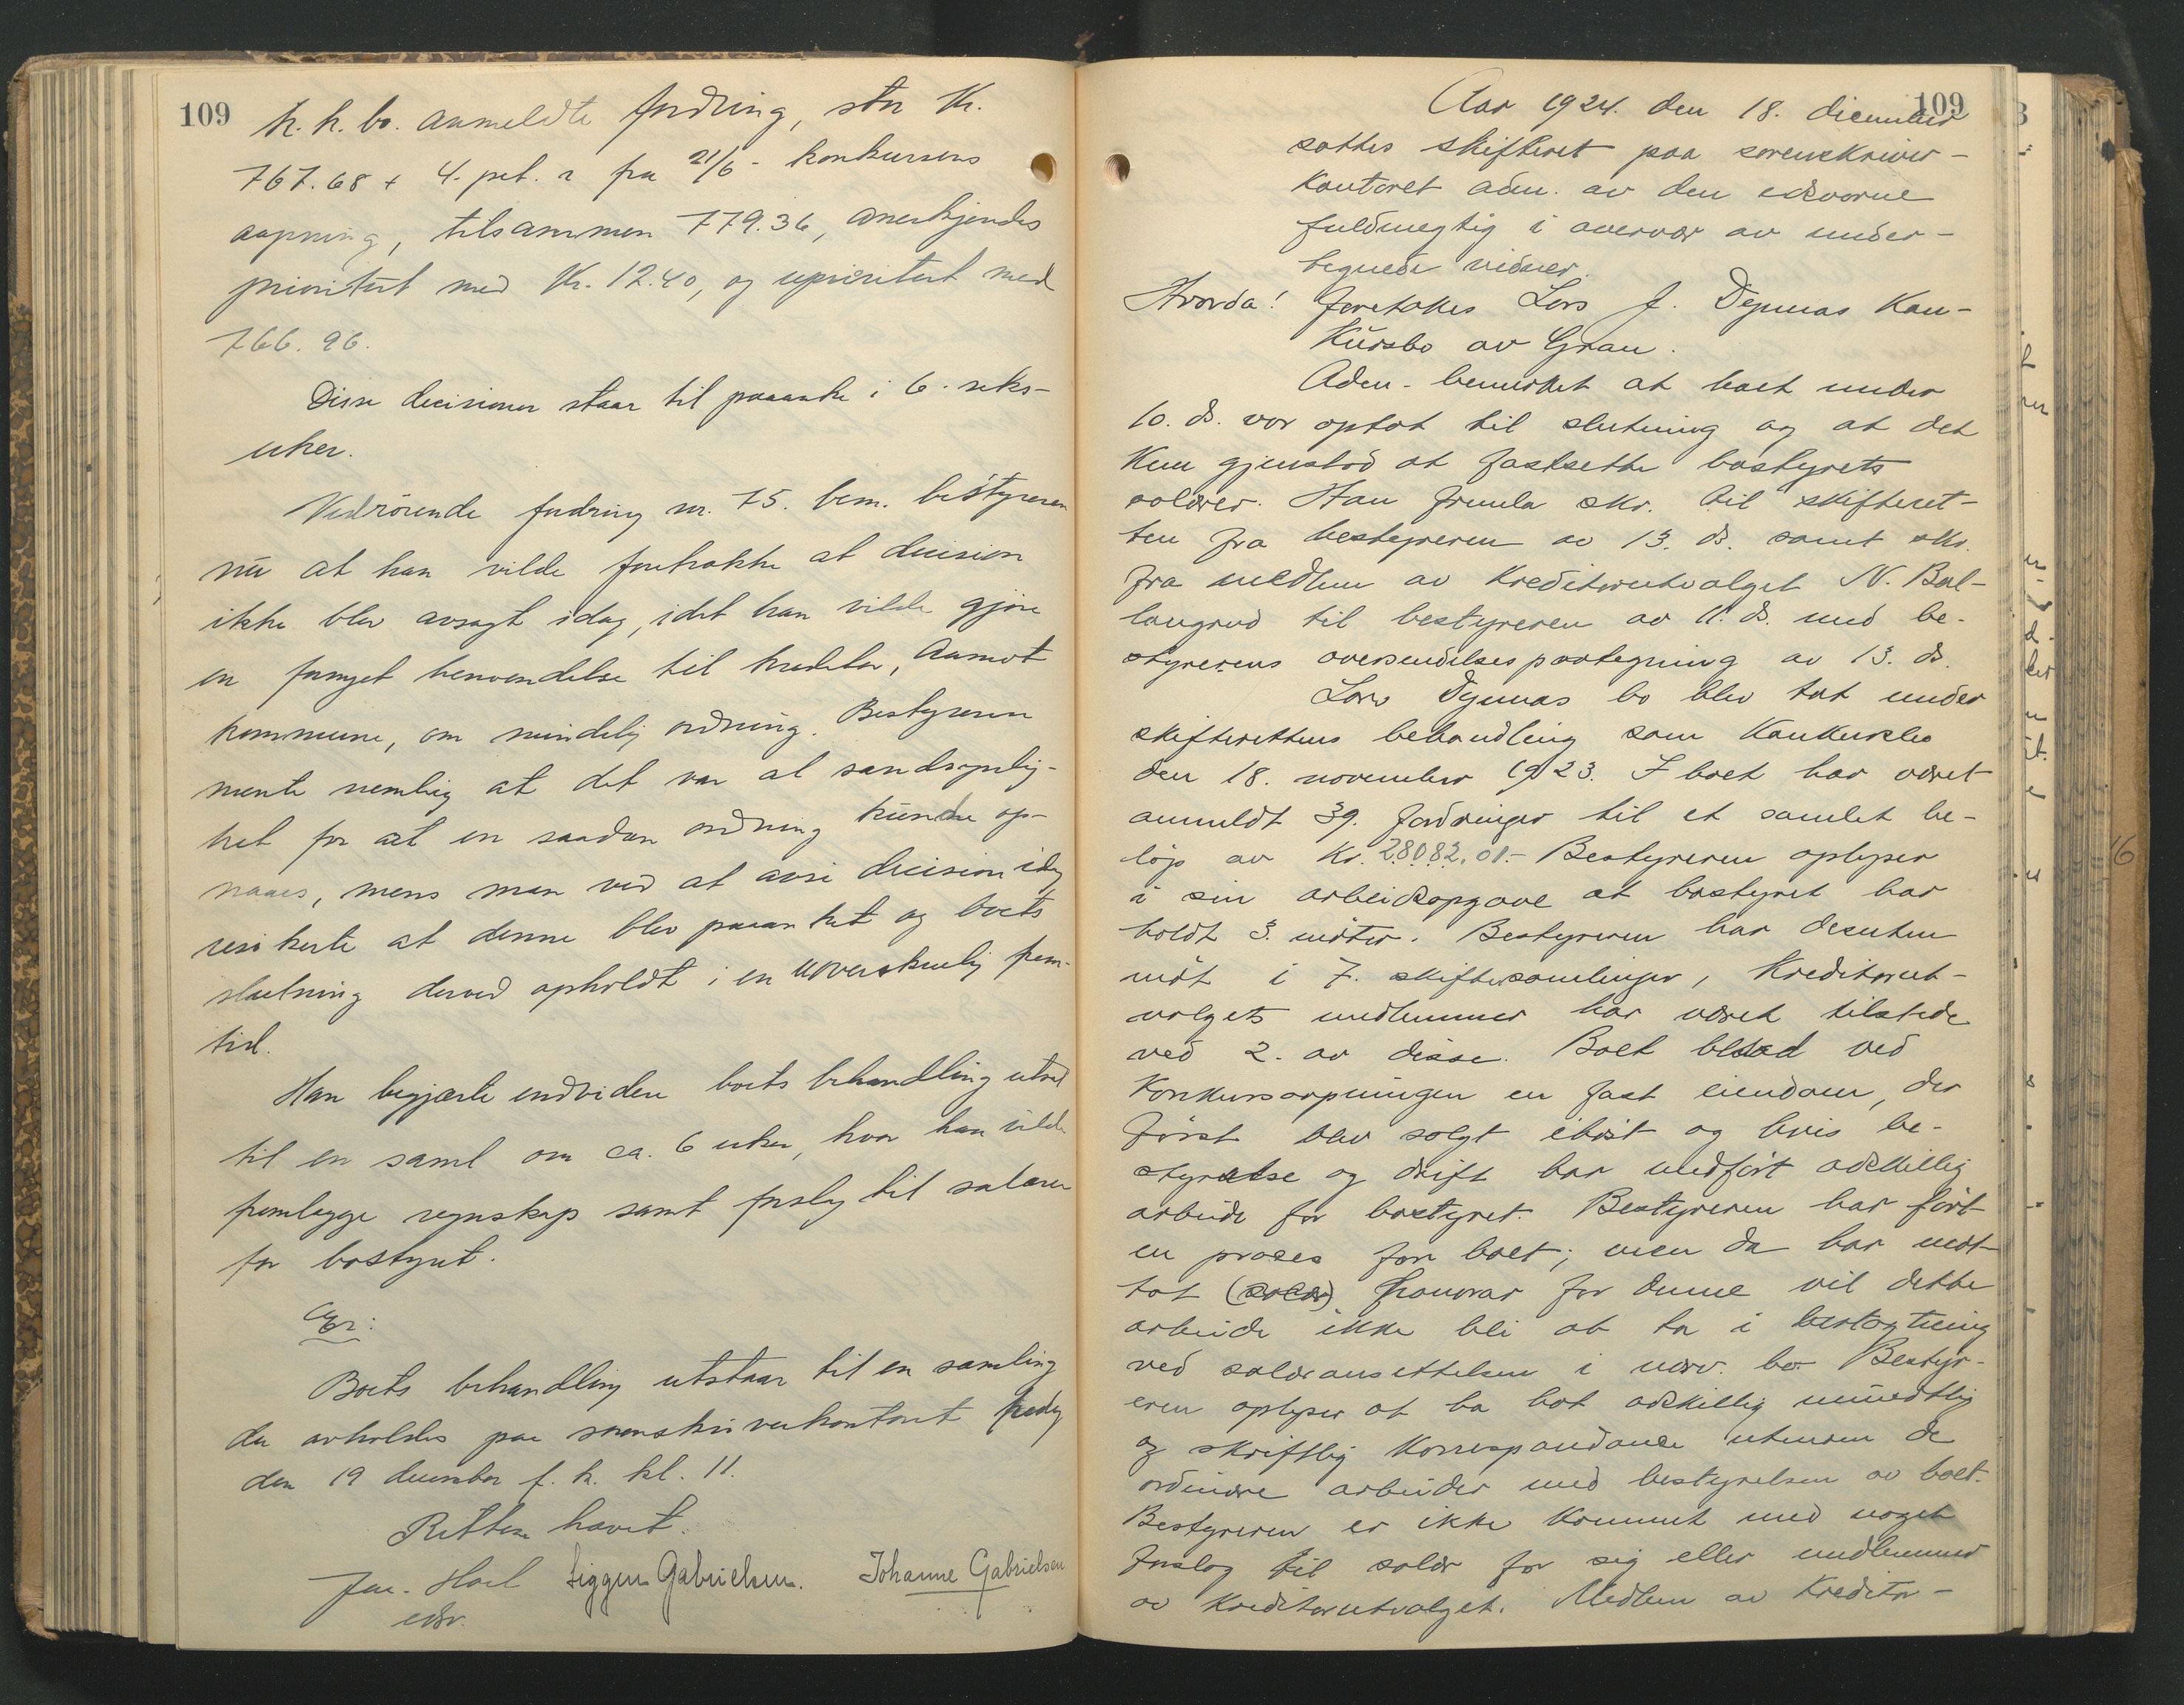 109
k. k. bo. anmeldte fordring, stor Kr.
767.68 + 4. pct. r fra 21/6 - konkursens
aapning, tilsammen 779.36, anerkjendes
prioritert med Kr. 12.40, og uprioritert med
766.96.
Disse decisioner staar til paaanke i 6. seks-
uker.
Vedrörende fordring nr. 75. bem. bestyreren
nu at han vilde foretrække at decision
ikke blev avsagt idag, idet han vilde gjöre
en fornyet henvendelse til kreditor, Aamot
kommune, om mindelig ordning. Bestyreren
mente nemlig at det var al sandsynlig-
het for at en saadan ordning kunde op-
naaes, mens man ved at avsi decision idag
resikerte at denne blev paaanket og boets
slutning derved opholdt i en uoverskuelig frem-
tid.
Han begjærte endvidere boets behandling utsat
til en saml om ca. 6 uker, hvor han vilde
fremlegge regnskap samt forslag til salærer
for bostyret.
Boets behandling utstaar til en samling
der avholdes paa sorenskriverkontoret fredag
den 19 december f. k. kl. 11.
Retten hævet.
Hoel Sigurd Gabrielsen. Johanne Gabrielsen
edsv.
109
Aar 1924. den 18. december
sattes skifteret paa sorenskriver-
kontoret adm. av den edsvorne
fuldmegtig i overvær av under-
tegnede vidner.
Hvorda! foretokes Lars J. Dynnas Kon-
kursbo av Gran.
Adm. bemerket at boet under
10. ds. var optat til slutning og at det
kun gjenstod at fastsette bostyrets
salærer. Han fremla skr. til skifteret-
ten fra bestyreren av 13. ds. samt skr.
fra medlem av kreditorutvalget N. Bal-
langrud til bestyreren av 11. ds. med be-
styrerens oversendelsespaategning av 13. ds.
Lars Dynnas bo blev tat under
skifterettens behandling som Konkursbo
den 18. november 1923. I boet har været
anmeldt 39. fordringer til et samlet be-
löp av Kr. 28082,01.- Bestyreren oplyser
i sin arbeidsopgave at bostyret har
holdt 3. möter. Bestyreren har desuten
möt i 7. skiftesamlinger, Kreditorut-
valgets medlemmer har været tilstede
ved 2. av disse. Boet besad ved
Konkursaapningen en fast eiendom, der
först blev solgt ihöst og hvis be-
styrelse og drift har medfört adskillig
arbeide for bostyret. Bestyreren har fört
en proces for boet; men da har mot-
tat (salær) honorar for denne vil dette
arbeide ikke bli at ta i betragtning
ved salæransettelsen i nærv. bo. Bestyr-
eren oplyser at ha hat adskillig mundtlig
og skriftlig korrespondance utenom de
ordinære arbeider med bestyrelsen av boet.
Bestyreren er ikke kommet med noget
forslag til salær for sig eller medlemmer
av kreditorutvalget. Medlem av Kreditor-